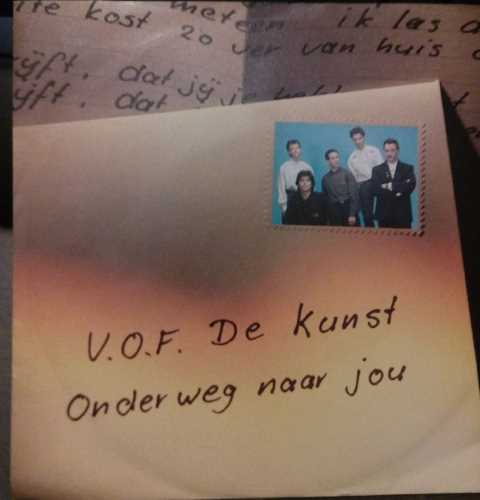 kost meteen. ik las
20 ver van huis
ijft. dat jij je
ijft. dat
V.O.F. De Kunst
Onderweg naar jou